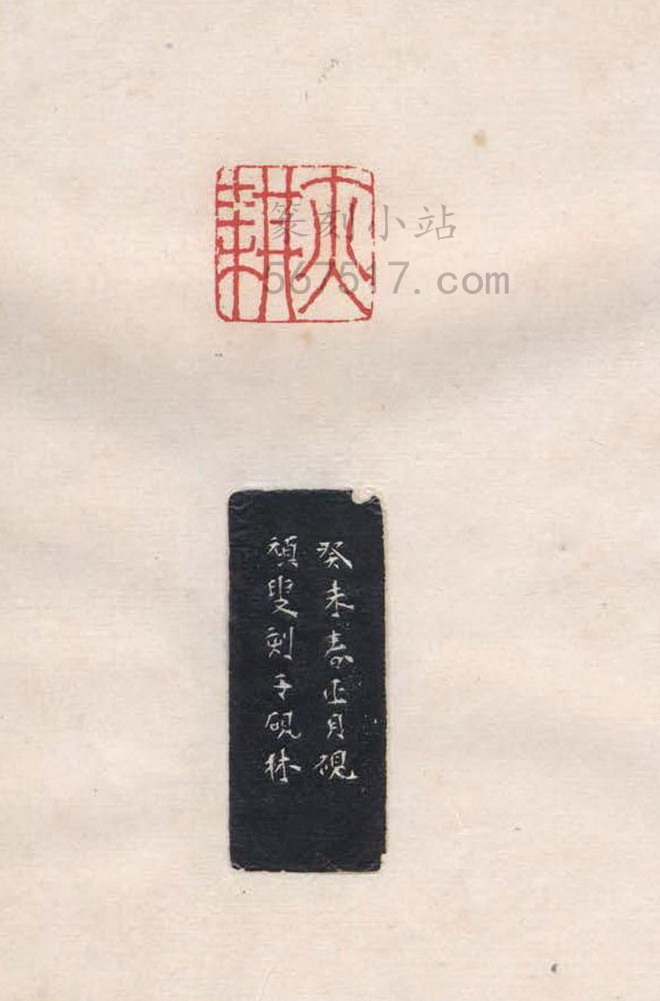 耕
篆刻小站
567517.com
癸未春正月硯
頑叟刻于硯林